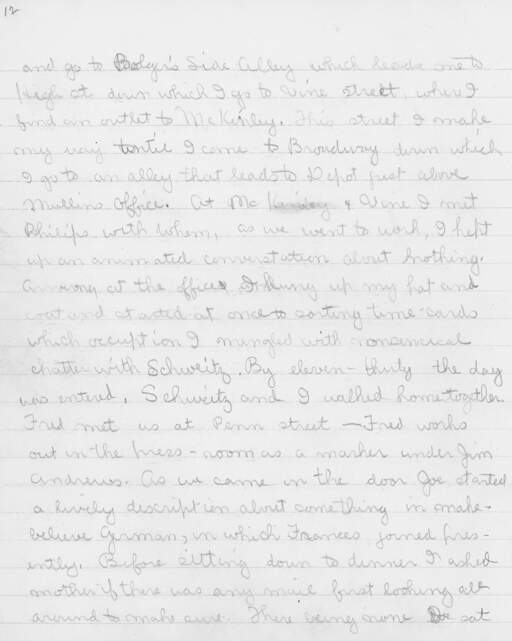 12
and go to Bolger's Side Alley which leads one to
High st down which I go to Vine street, where I
find an outlet to McKinley. This street I make
my way till I come to Broadway down which
I go to an alley that leads to Depot just above
Mullins Office. At McKinley & Vine I met
Philips with whom, as we went to work, I kept
up an animated conversation about nothing.
Arriving at the office, I hung up my hat and
coat and started at once to sorting time-cards
which occuption I mingled with nonsensical
chatter with Schweitz. By eleven-thirty the day
was entered. Schweitz and I walked home together
Fred met us at Penn street — Fred works
out in the press-room as a masher under Jim
Andrews. As we came in the door Joe started
a lively description about something in make-
believe German, in which Frances joined pres-
ently. Before sitting down to dinner I asked
mother if there was any mail first looking all
around to make sure. There being none sat